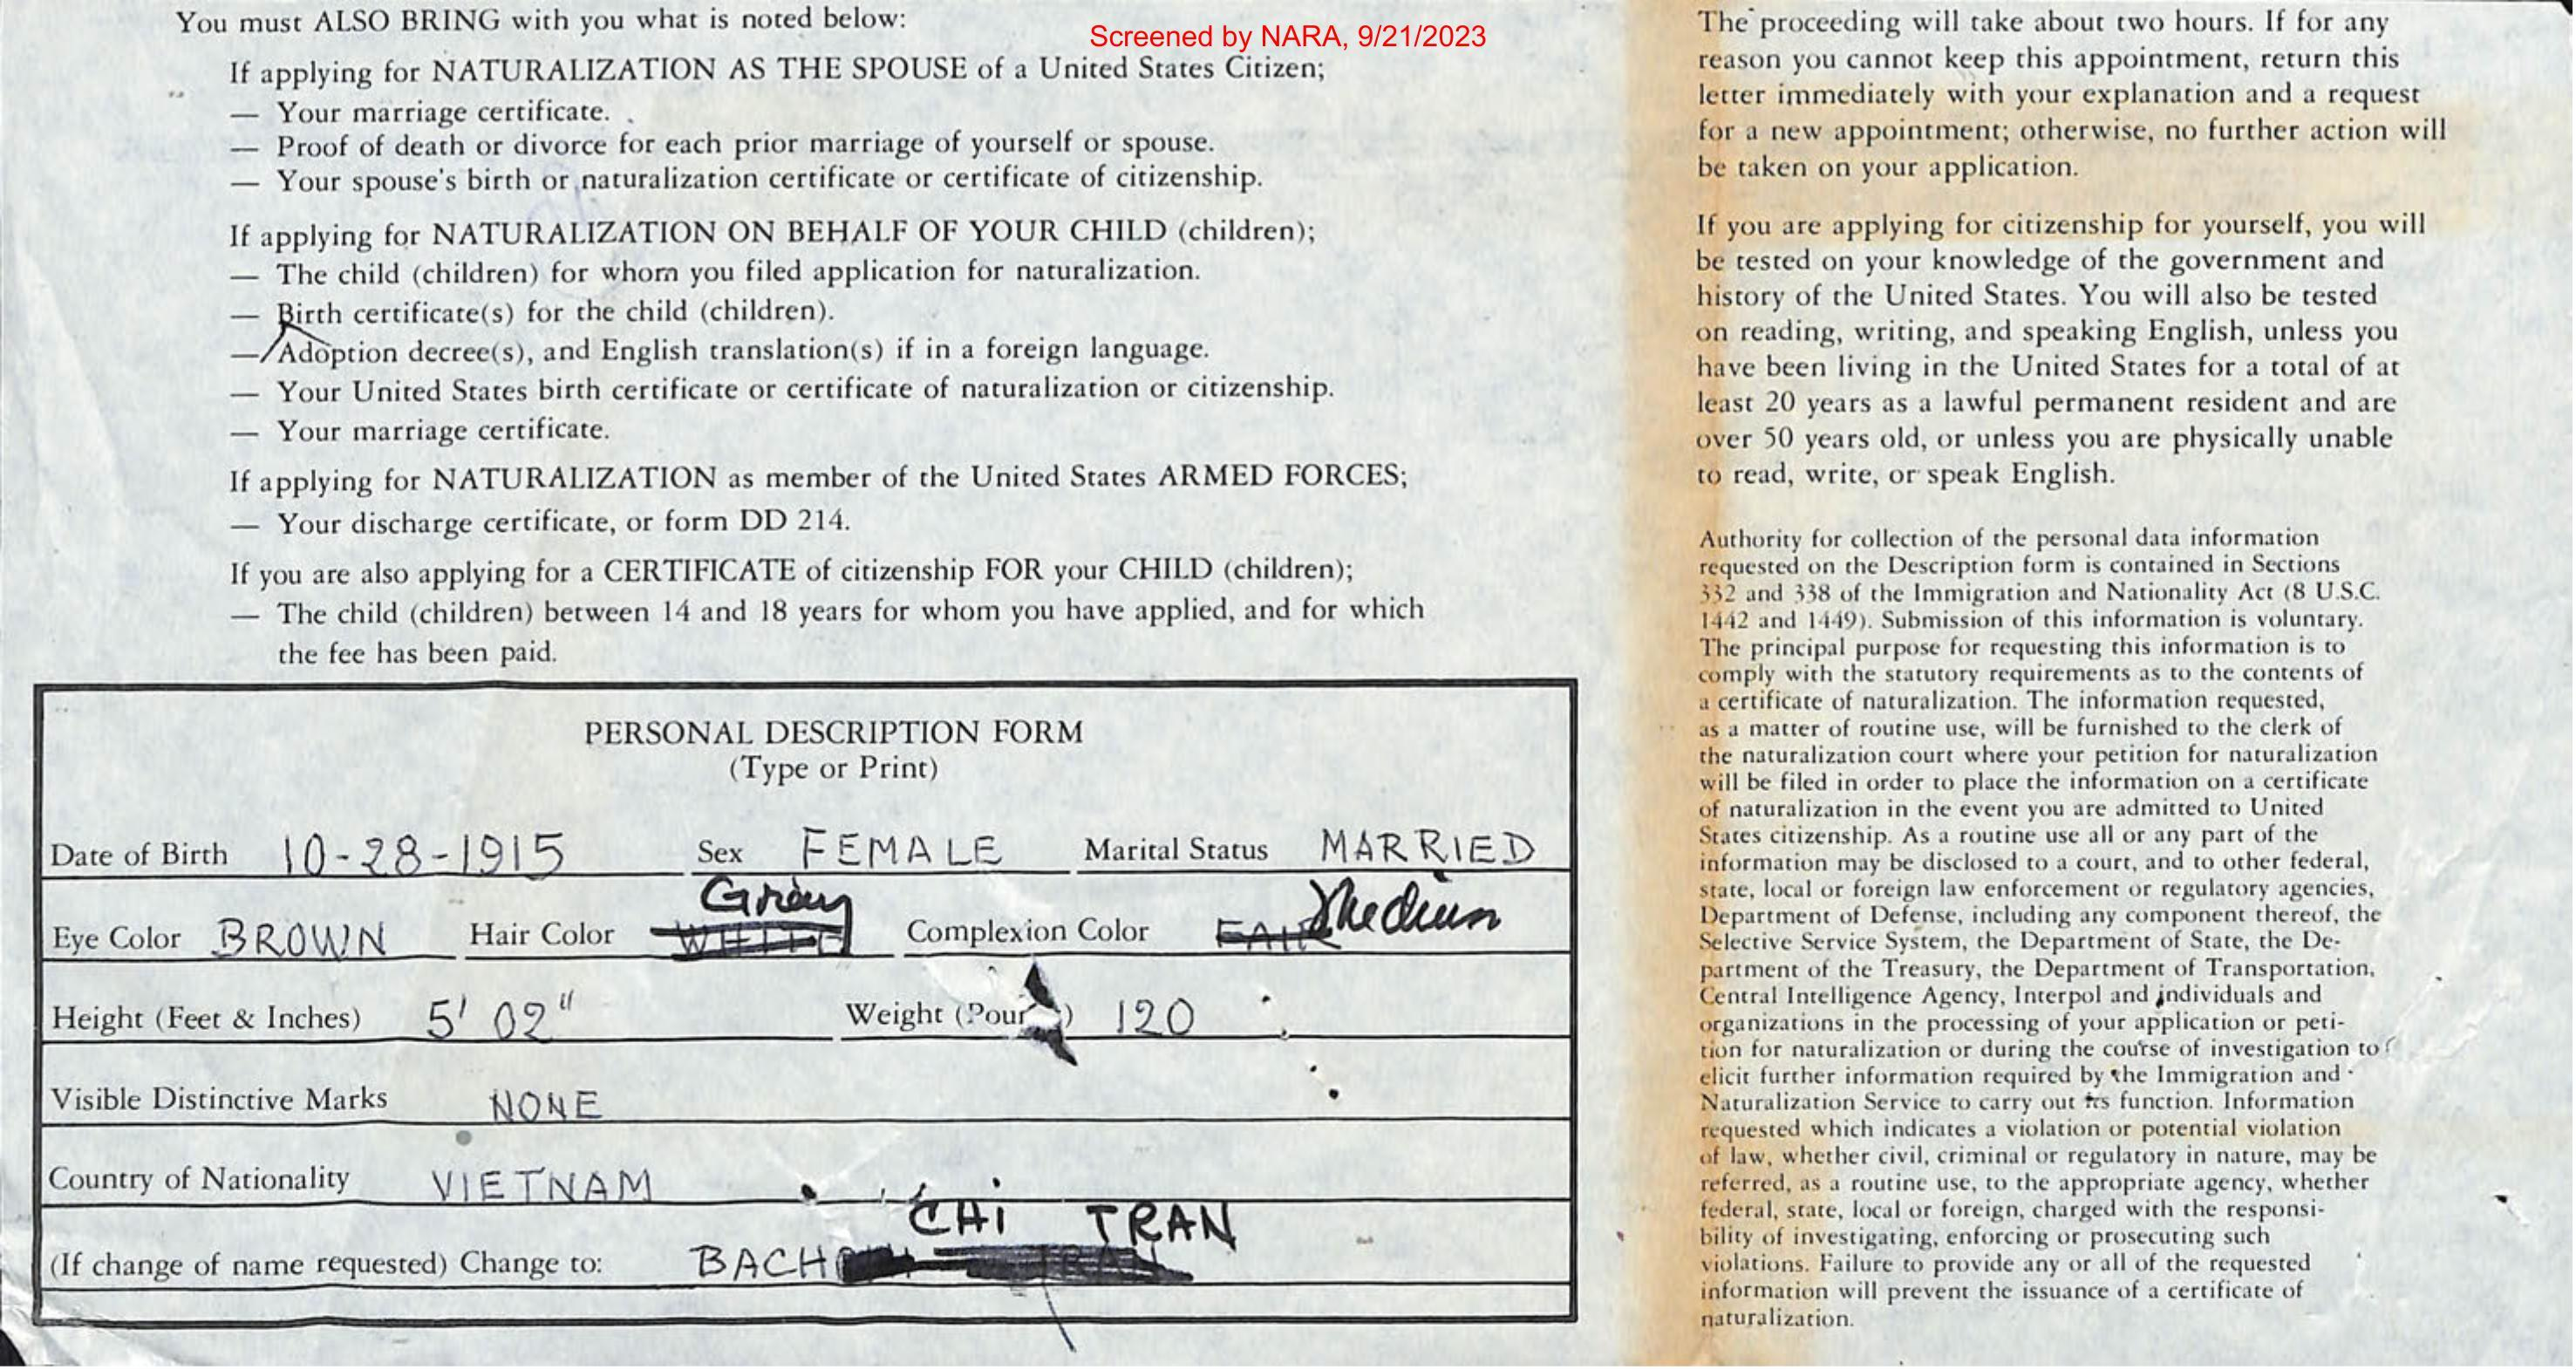 Screened by NARA, 9/21/2023
You must ALSO BRING with you what is noted below:
If applying for NATURALIZATION AS THE SPOUSE of a United States Citizen;
— Your marriage certificate.
— Proof of death or divorce for each prior marriage of yourself or spouse.
— Your spouse's birth or naturalization certificate or certificate of citizenship.
If applying for NATURALIZATION ON BEHALF OF YOUR CHILD (children);
— The child (children) for whom you filed application for naturalization.
— Birth certificate(s) for the child (children).
— Adoption decree(s), and English translation(s) if in a foreign language.
— Your United States birth certificate or certificate of naturalization or citizenship.
— Your marriage certificate.
If applying for NATURALIZATION as member of the United States ARMED FORCES;
— Your discharge certificate, or form DD 214.
If you are also applying for a CERTIFICATE of citizenship FOR your CHILD (children);
— The child (children) between 14 and 18 years for whom you have applied, and for which
the fee has been paid.
PERSONAL DESCRIPTION FORM
(Type or Print)
Date of Birth 10-28-1915 Sex FEMALE Marital Status MARRIED
Gray
Eye Color BROWN Hair Color WHITE Complexion Color FAIR Medium
Height (Feet & Inches) 5' 02" Weight 120
Visible Distinctive Marks NONE
Country of Nationality VIETNAM
CHi TRAN
(If change of name requested) Change to: BACH
The proceeding will take about two hours. If for any
reason you cannot keep this appointment, return this
letter immediately with your explanation and a request
for a new appointment; otherwise, no further action will
be taken on your application.
If you are applying for citizenship for yourself, you will
be tested on your knowledge of the government and
history of the United States. You will also be tested
on reading, writing, and speaking English, unless you
have been living in the United States for a total of at
least 20 years as a lawful permanent resident and are
over 50 years old, or unless you are physically unable
to read, write, or speak English.
Authority for collection of the personal data information
requested on the Description form is contained in Sections
332 and 338 of the Immigration and Nationality Act (8 U.S.C.
1442 and 1449). Submission of this information is voluntary.
The principal purpose for requesting this information is to
comply with the statutory requirements as to the contents of
a certificate of naturalization. The information requested,
as a matter of routine use, will be furnished to the clerk of
the naturalization court where your petition for naturalization
will be filed in order to place the information on a certificate
of naturalization in the event you are admitted to United
States citizenship. As a routine use all or any part of the
information may be disclosed to a court, and to other federal,
state, local or foreign law enforcement or regulatory agencies,
Department of Defense, including any component thereof, the
Selective Service System, the Department of State, the De-
partment of the Treasury, the Department of Transportation,
Central Intelligence Agency, Interpol and individuals and
organizations in the processing of your application or peti-
tion for naturalization or during the course of investigation to
elicit further information required by the Immigration and
Naturalization Service to carry out its function. Information
requested which indicates a violation or potential violation
of law, whether civil, criminal or regulatory in nature, may be
referred, as a routine use, to the appropriate agency, whether
federal, state, local or foreign, charged with the responsi-
bility of investigating, enforcing or prosecuting such
violations. Failure to provide any or all of the requested
information will prevent the issuance of a certificate of
naturalization.